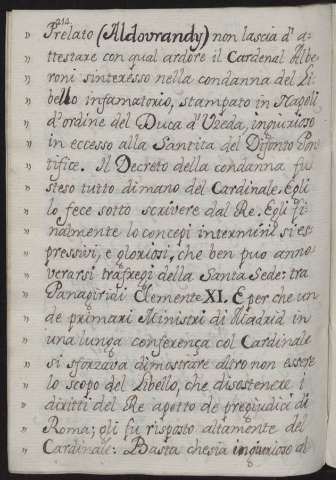 214
„ Prelato (Aldovrandy) non lascia d' at-
„ testare con qual ardore il Cardenal Albe
„ roni sinteressò nella condanna del Li
„ bello infamatorio, stampato in Napoli
„ d'ordine del Duca d'Uzeda, ingiurioso
„ in eccesso alla Santita del Difonto Pon
„ tifice. Il Decreto della condanna fu
„ steso tutto di mano del Cardinale. Egli
„ lo fece sotto scrivere dal Re. Egli fi
„ nalmente lo concepi intermini si es-
„ pressivi, e gloriosi, che ben puo anno
„ verarsi trafregi della Santa Sede: tra
„ Panagiridi Clemente XI. E per che un
„ de primari Ministri di Madrid in
„ una lunga conferença col Cardinale
„ si sforzava dimostrare altro non essere
„ lo scopo del Libello, che disostenere i
„ diritti del Re apetto de pregiudici di
„ Roma; gli fu risposto altamente del
„ Cardinale: Basta chesia ingiurioso di